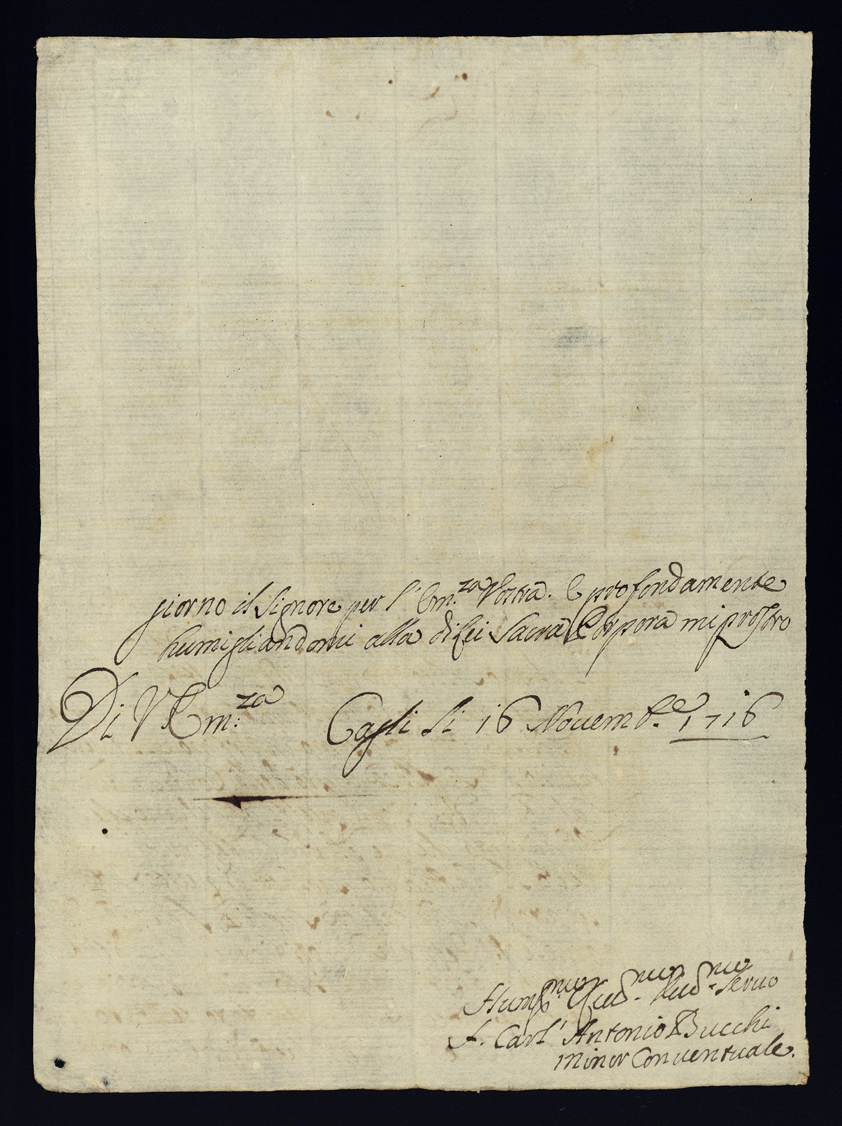 giorno il Signore per l'Em.za Vostra. E profondamente
humigliandomi alla di lei Sacra Porpora mi prostro
Di V Em:za Cagli li 16 Novemb.e 1716
Hum.mo Dev.mo Servo
F. Carl' Antonio Bucchi
Minor Conventuale.